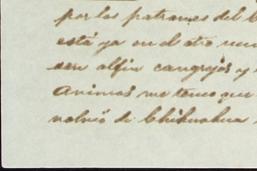 por los patrones del
está ya en el otro mun
ser alfin cangrejos y
Animas me temo que
volvió de Chihuahua